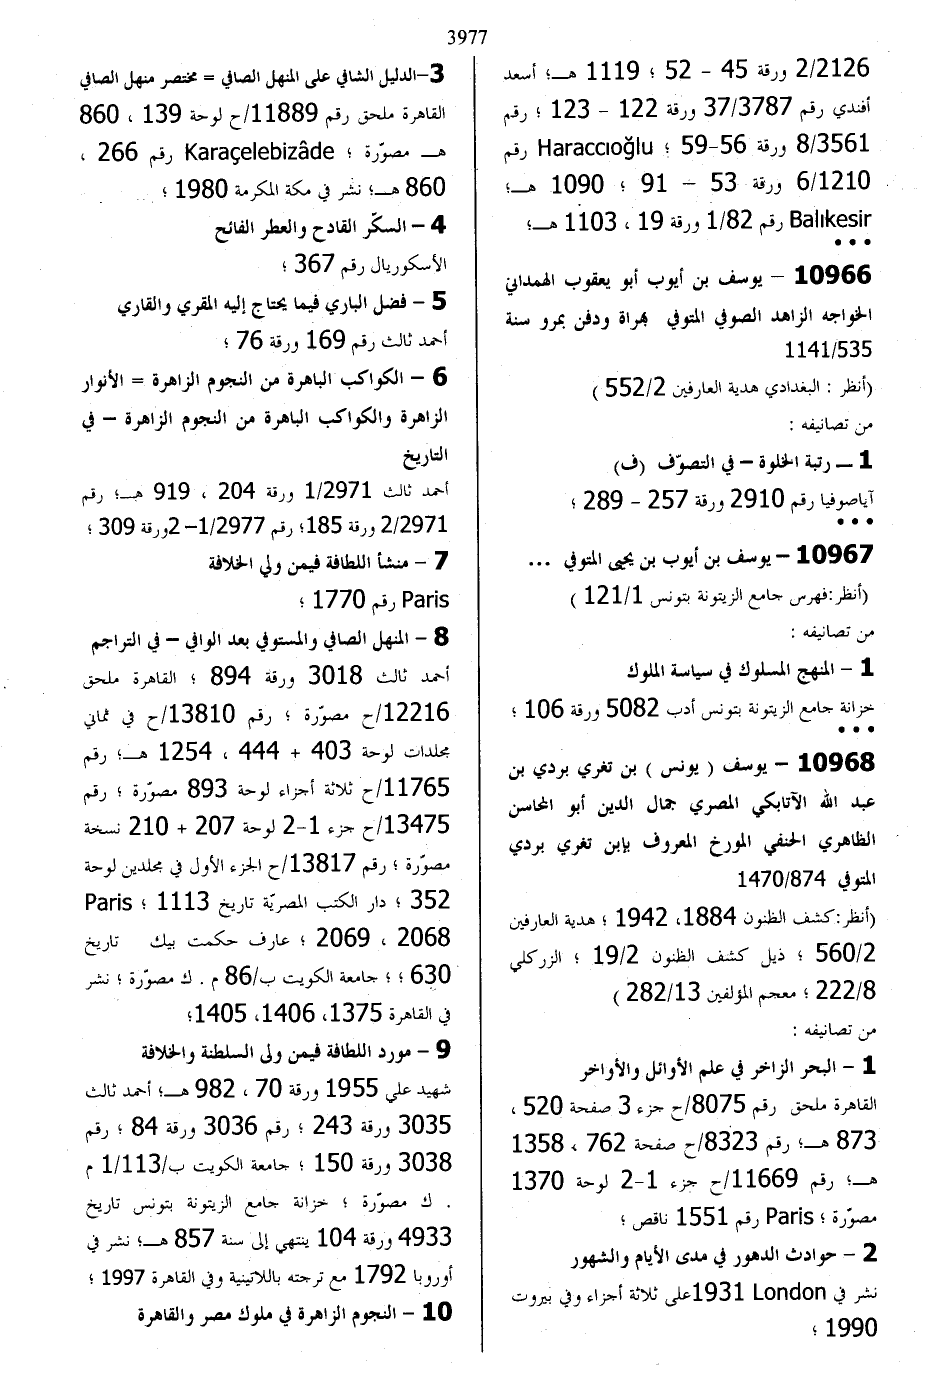 3977
2/2126 ورقة 45 – 52 ؛ 1119 هـ؛ أسعد
أفندي رقم 37/3787 ورقة 122 – 123 ؛ رقم
8/3561 ورقة 56–59 ؛ Haraccıoğlu رقم
6/1210 ورقة 53 – 91 ؛ 1090 هـ؛
Balıkesir رقم 1/82 ورقة 19 ، 1103 هـ؛
•••
10966 – يوسف بن أيوب أبو يعقوب الهمداني
الخواجه الزاهد الصوفي المتوفي بهراة ودفن بمرو سنة
1141/535
(أنظر : البغدادي هدية العارفين 552/2 )
من تصانيفه :
1 – رتبة الخلوة – في التصوّف (ف)
آياصوفيا رقم 2910 ورقة 257 – 289 ؛
•••
10967 – يوسف بن أيوب بن يحيى المتوفي ...
(أنظر:فهرس جامع الزيتونة بتونس 121/1 )
من تصانيفه :
1 – المنهج المسلوك في سياسة الملوك
خزانة جامع الزيتونة بتونس أدب 5082 ورقة 106 ؛
•••
10968 – يوسف ( يونس ) بن تغري بردي بن
عبد الله الآتابكي المصري جمال الدين أبو المحاسن
الظاهري الحنفي المورخ المعروف بإبن تغري بردي
المتوفي 1470/874
(أنظر:كشف الظنون 1884، 1942 ؛ هدية العارفين
560/2 ؛ ذيل كشف الظنون 19/2 ؛ الزركلي
222/8 ؛ معجم المؤلفين 282/13 )
من تصانيفه :
1 – البحر الزاخر في علم الأوائل والأواخر
القاهرة ملحق رقم 8075/ح جزء 3 صفحة 520 ،
873 هـ؛ رقم 8323/ح صفحة 762 ، 1358
هـ؛ رقم 11669/ح جزء 1–2 لوحة 1370
مصوّرة ؛ Paris رقم 1551 ناقص ؛
2 – حوادث الدهور في مدى الأيام والشهور
نشر في London 1931على ثلاثة أجزاء وفي بيروت
1990 ؛
3–الدليل الشافي على المنهل الصافي = مختصر منهل الصافي
القاهرة ملحق رقم 11889/ح لوحة 139 ، 860
هـ مصوّرة ؛ Karaçelebizâde رقم 266 ،
860 هـ؛ نشر في مكة المكرمة 1980 ؛
4 – السكّر القادح والعطر الفائح
الأسكوريال رقم 367 ؛
5 – فضل الباري فيما يحتاج إليه المقري والقاري
أحمد ثالث رقم 169 ورقة 76 ؛
6 – الكواكب الباهرة من النجوم الزاهرة = الأنوار
الزاهرة والكواكب الباهرة من النجوم الزاهرة – في
التاريخ
أحمد ثالث 1/2971 ورقة 204 ، 919 هـ؛ رقم
2/2971 ورقة 185؛ رقم 1/2977–2ورقة 309 ؛
7 – منشأ اللطافة فيمن ولي الخلافة
Paris رقم 1770 ؛
8 – المنهل الصافي والمستوفي بعد الوافي – في التراجم
أحمد ثالث 3018 ورقة 894 ؛ القاهرة ملحق
12216/ح مصوّرة ؛ رقم 13810/ح في ثماني
مجلدات لوحة 403 + 444 ، 1254 هـ؛ رقم
11765/ح ثلاثة أجزاء لوحة 893 مصوّرة ؛ رقم
13475/ح جزء 1–2 لوحة 207 + 210 نسخة
مصوّرة ؛ رقم 13817/ح الجزء الأول في مجلدين لوحة
352 ؛ دار الكتب المصريّة تاريخ 1113 ؛ Paris
2068 ، 2069 ؛ عارف حكمت بيك تاريخ
630 ؛ ؛ جامعة الكويت ب/86 م . ك مصوّرة ؛ نشر
في القاهرة 1375، 1406، 1405؛
9 – مورد اللطافة فيمن ولى السلطنة والخلافة
شهيد علي 1955 ورقة 70 ، 982 هـ؛ أحمد ثالث
3035 ورقة 243 ؛ رقم 3036 ورقة 84 ؛ رقم
3038 ورقة 150 ؛ جامعة الكويت ب/1/113 م
. ك مصوّرة ؛ خزانة جامع الزيتونة بتونس تاريخ
4933 ورقة 104 ينتهي إلى سنة 857 هـ؛ نشر في
أوروبا 1792 مع ترجته باللاتينية وفي القاهرة 1997 ؛
10 – النجوم الزاهرة في ملوك مصر والقاهرة